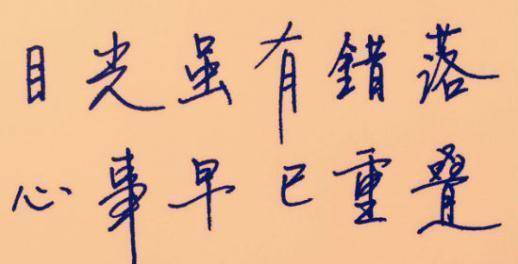 目光虽有錯落
心事早已重叠